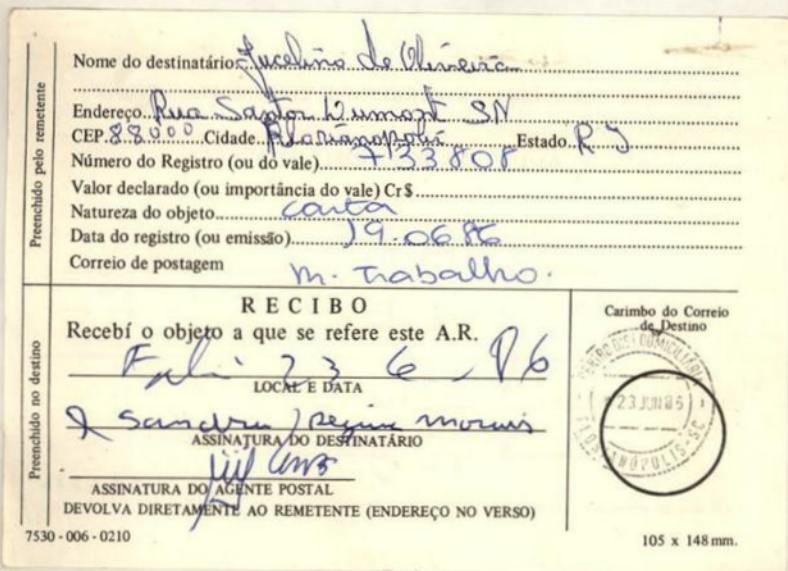 Preenchido pelo remetente
Nome do destinatário: Jucelino de Oliveira
Endereço.. Rua Santos Dumont SN
CEP. 88000 Cidade Florianopolis Estado.. RJ
Número do Registro (ou do vale) 733808
Valor declarado (ou importância do vale) Cr$
Natureza do objeto carta
Data do registro (ou emissão) 19.06.86
Correio de postagem m. Trabalho.
Preenchido no destino
RECIBO
Recebí o objeto a que se refere este A.R.
23 6 86
LOCAL E DATA
Sandra Regina Morais
ASSINATURA DO DESTINATÁRIO
ASSINATURA DO AGENTE POSTAL
DEVOLVA DIRETAMENTE AO REMETENTE (ENDEREÇO NO VERSO)
Carimbo do Correio
de Destino
CENTRO DIST DOMICILIÁRIA
23 JUN 86
FLORIANÓPOLIS-SC
7530 - 006 - 0210
105 x 148 mm.